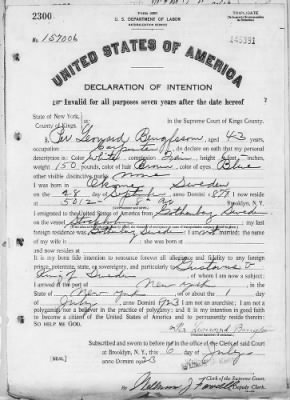 2300
U. S. DEPARTMENT OF LABOR
TRIPLICATE
No. 157006
145391
UNITED STATES OF AMERICA
DECLARATION OF INTENTION
Invalid for all purposes seven years after the date hereof
State of New York,
County of Kings,
In the Supreme Court of Kings County.
I, Per Leonard Bengtsson, aged 43 years,
occupation Carpenter, do declare on oath that my personal
description is: Color White, complexion, height feet inches,
weight 150 pounds, color of hair Brown, color of eyes Blue
other visible distinctive marks none
I was born in Sweden
on the 28 day of, anno Domini 1879; I now reside
at 5012 - 8 Ave Brooklyn, N. Y.
I emigrated to the United States of America from Gothenburg Sweden
on the vessel; my last
foreign residence was; I am not married; the name
of my wife is; she was born at
and now resides at
It is my bona fide intention to renounce forever all allegiance and fidelity to any foreign
prince, potentate, state, or sovereignty, and particularly to Gustavus V
King of Sweden, of whom I am now a subject;
I arrived at the port of New York, in the
State of New York, on or about the day
of July, anno Domini 1923; I am not an anarchist; I am not a
polygamist nor a believer in the practice of polygamy; and it is my intention in good faith
to become a citizen of the United States of America and to permanently reside therein:
SO HELP ME GOD.
Per Leonard Bengtsson
Subscribed and sworn to before me in the office of the Clerk of said Court
at Brooklyn, N. Y., this 6 day of July
anno Domini 1923
[SEAL]
Clerk of the Supreme Court.
Deputy Clerk.